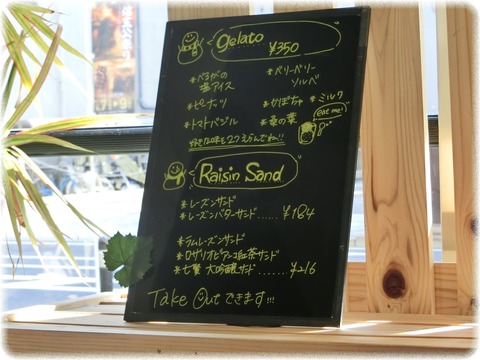 gelato
¥350
*べるがの
塩アイス
*ベリーベリー
ソルベ
*ピーナッツ
*かぼちゃ *ミルク
*トマトバジル
*桑の葉
eat me!
好きな味を2つえらんでね!!
Raisin Sand
*レーズンサンド
*レーズンバターサンド......¥184
*ラムレーズンサンド
*ロザリオビアンコ紅茶サンド
*七賢 大吟醸サンド......¥216
Take Outできます!!!